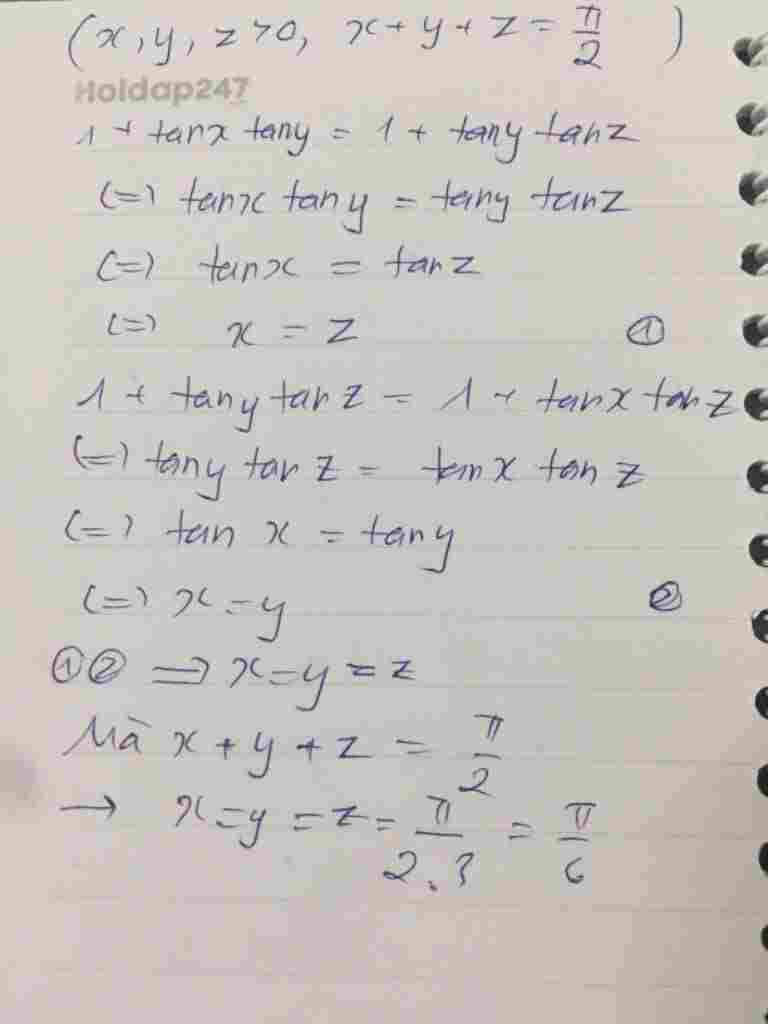 (x, y, z > 0, x + y + z = π/2 )
Hoidap247
1 + tanx tany = 1 + tany tanz
(=) tanx tany = tany tanz
(=) tanx = tanz
(=) x = z ①
1 + tany tanz = 1 + tanx tanz
(=) tany tanz = tanx tanz
(=) tan x = tany
(=) x = y ②
①② => x = y = z
Mà x + y + z = π/2
→ x = y = z = π/2.3 = π/6